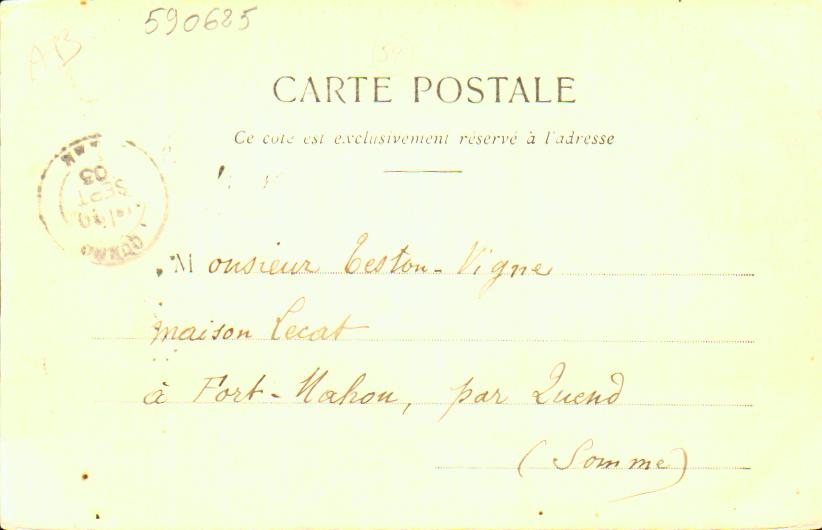 590685
AB
CARTE POSTALE
Ce coté est exclusivement réservé à l'adresse
QUEND
SEPT
03
Monsieur Teston-Vigne
maison Lecat
à Fort-Mahon, par Quend
(Somme)